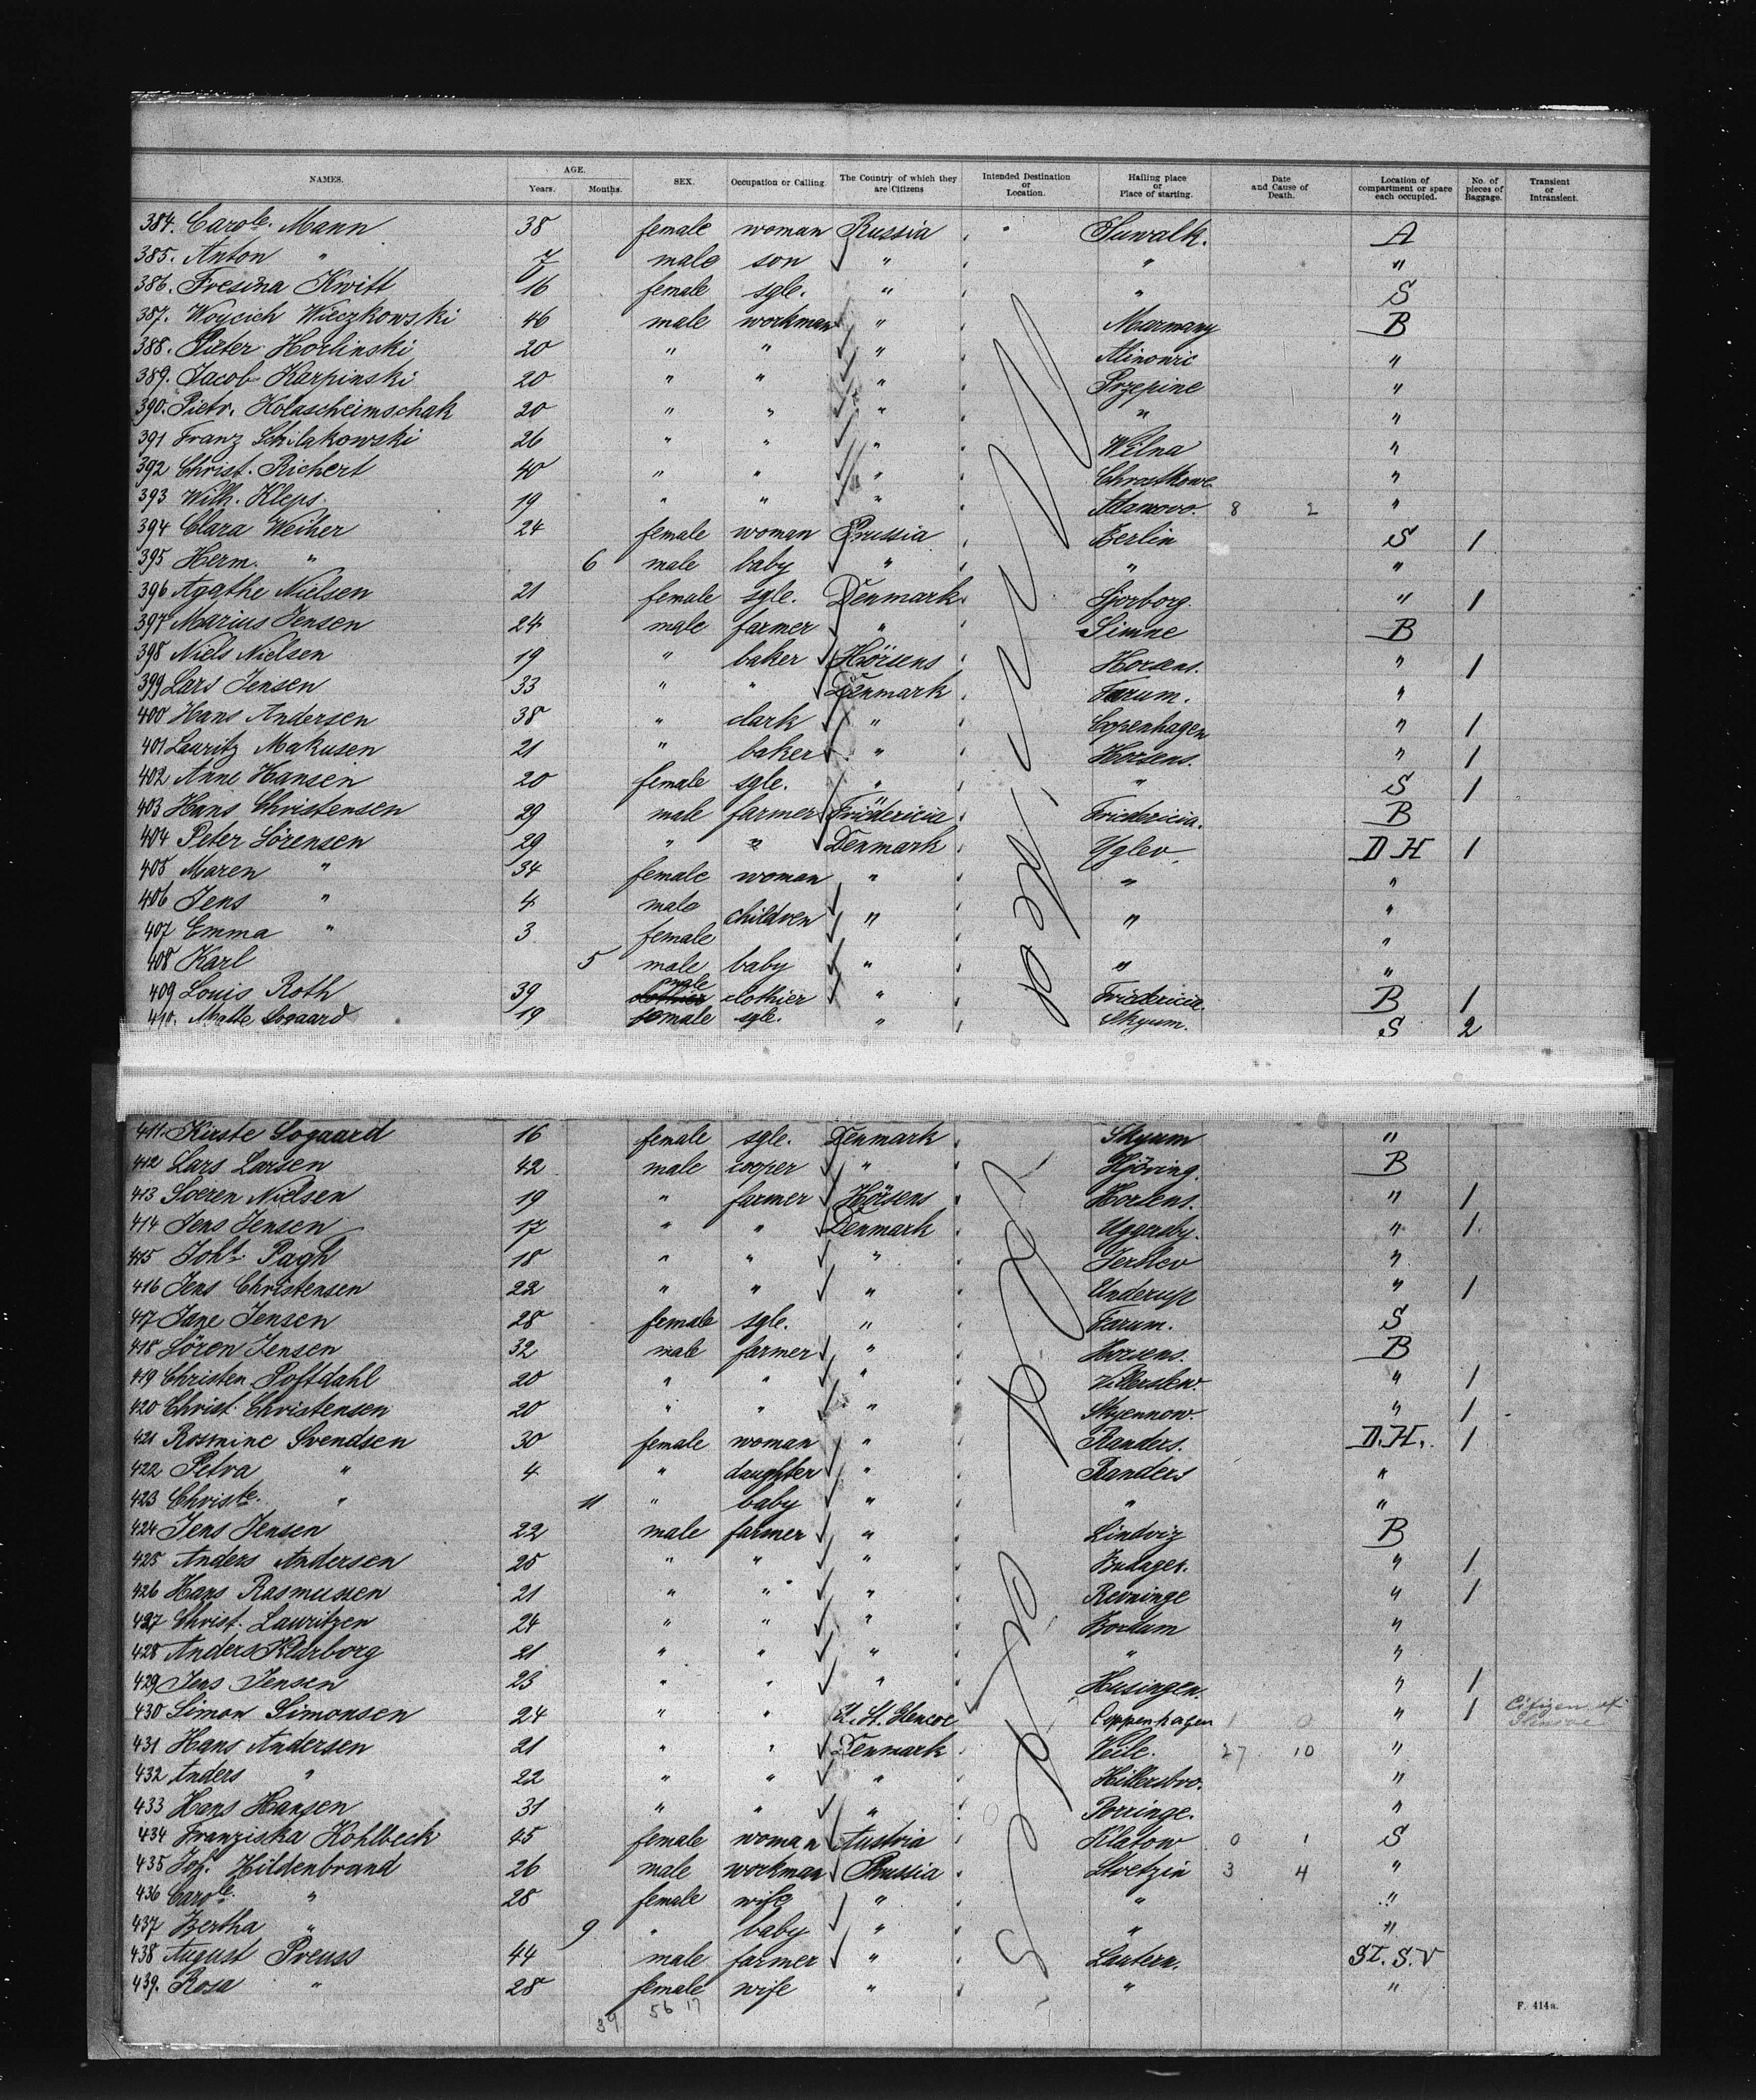 NAMES. AGE. Years. Months. SEX. Occupation or Calling. The Country of which they are Citizens Intended Destination or Location. Hailing place or Place of starting. Date and Cause of Death. Location of compartment or space each occupied. No. of pieces of Baggage. Transient or Intransient.
384. Carole. Mann 38 female woman Russia Suwalk. A
385. Anton " 7 male son " " "
386. Fresina Kwitt 16 female sgle. " " S
387. Woycich Wieczkowski 46 male workman " Marmany B
388. Pieter Horlinski 20 " " " Alinowic "
389. Jacob Karpinski 20 " " " Przepine "
390. Pietr. Holascheimschak 20 " " " " "
391 Franz Schilakowski 26 " " " Wilna "
392 Christ. Richert 40 " " " Chrostkowe "
393 Wilh. Kleps. 19 " " " Adamovo. 8 2 "
394 Clara Weiher 24 female woman Prussia Berlin S 1
395 Herm. " 6 male baby " " "
396 Agathe Nielsen 21 female sgle. Denmark Hjorborg. " 1
397 Marius Jensen 24 male farmer " Simne B
398 Niels Nielsen 19 " baker Hörsens Horsens. " 1
399 Lars Jensen 33 " " Denmark Farum. "
400 Hans Andersen 38 " clark " Copenhagen " 1
401 Lauritz Makusen 21 " baker " Horsens. " 1
402 Anne Hansen 20 female sgle. " " S 1
403 Hans Christensen 29 male farmer Friedericia Friedericia. B
404 Peter Sörensen 29 " " Denmark Yglev. D H 1
405 Maren " 34 female woman " " "
406 Jens " 4 male children " " "
407 Emma " 3 female "
408 Karl 5 male baby " " "
409 Louis Roth 39 male clothier " Friedericia. B 1
410. Matte Sogaard 19 female sgle. " Skyum. S 2
411. Kirste Sogaard 16 female sgle. Denmark Skyum "
412 Lars Larsen 42 male cooper " Hjöring. B
413 Soeren Nielsen 19 " farmer Hörsens Horsens. " 1
414 Jens Jensen 17 " " Denmark Uggersby. " 1
415 Joht. Pagh 18 " " " Jerslev "
416 Jens Christensen 22 " " " Underup " 1
417 Jane Jensen 28 female sgle. " Farum. S
418 Sören Jensen 32 male farmer " Horsens. B
419 Christen Poftdahl 20 " " " Villerslew. " 1
420 Christ. Christensen 20 " " " Skyennow. " 1
421 Rosmine Svendsen 30 female woman " Randers. D.H. 1
422 Petra " 4 " daughter " Randers "
423 Christe. " 11 " baby " " "
424 Jens Jensen 22 male farmer " Lindviz B
425 Anders Andersen 25 " " " Budager. " 1
426 Hans Rasmussen 21 " " " Revninge " 1
427 Christ. Lauritzen 24 " " " Bordum "
428 Anders Klarborg 21 " " " " "
429 Jens Jensen 23 " " " Husingen. " 1
430 Simon Simonsen 24 " " U. St. Glencoe Coppenhagen 1 0 " 1 Citizen of Glencoe
431 Hans Andersen 21 " " Denmark Veile. 27 10 "
432 Anders " 22 " " " Hillersbro. "
433 Hans Hansen 31 " " " Porringe. "
434 Franziska Kohlbeck 45 female woman Austria Klatow 0 1 S
435 Joh. Hildenbrand 26 male workman Prussia Stretzin 3 4 "
436 Carole. " 28 female wife " " "
437 Bertha " 9 " baby " " "
438 August Preuss 44 male farmer " Lautern. St. S. V
439. Rosa " 28 female wife " " "
39 56 17
F. 414a.